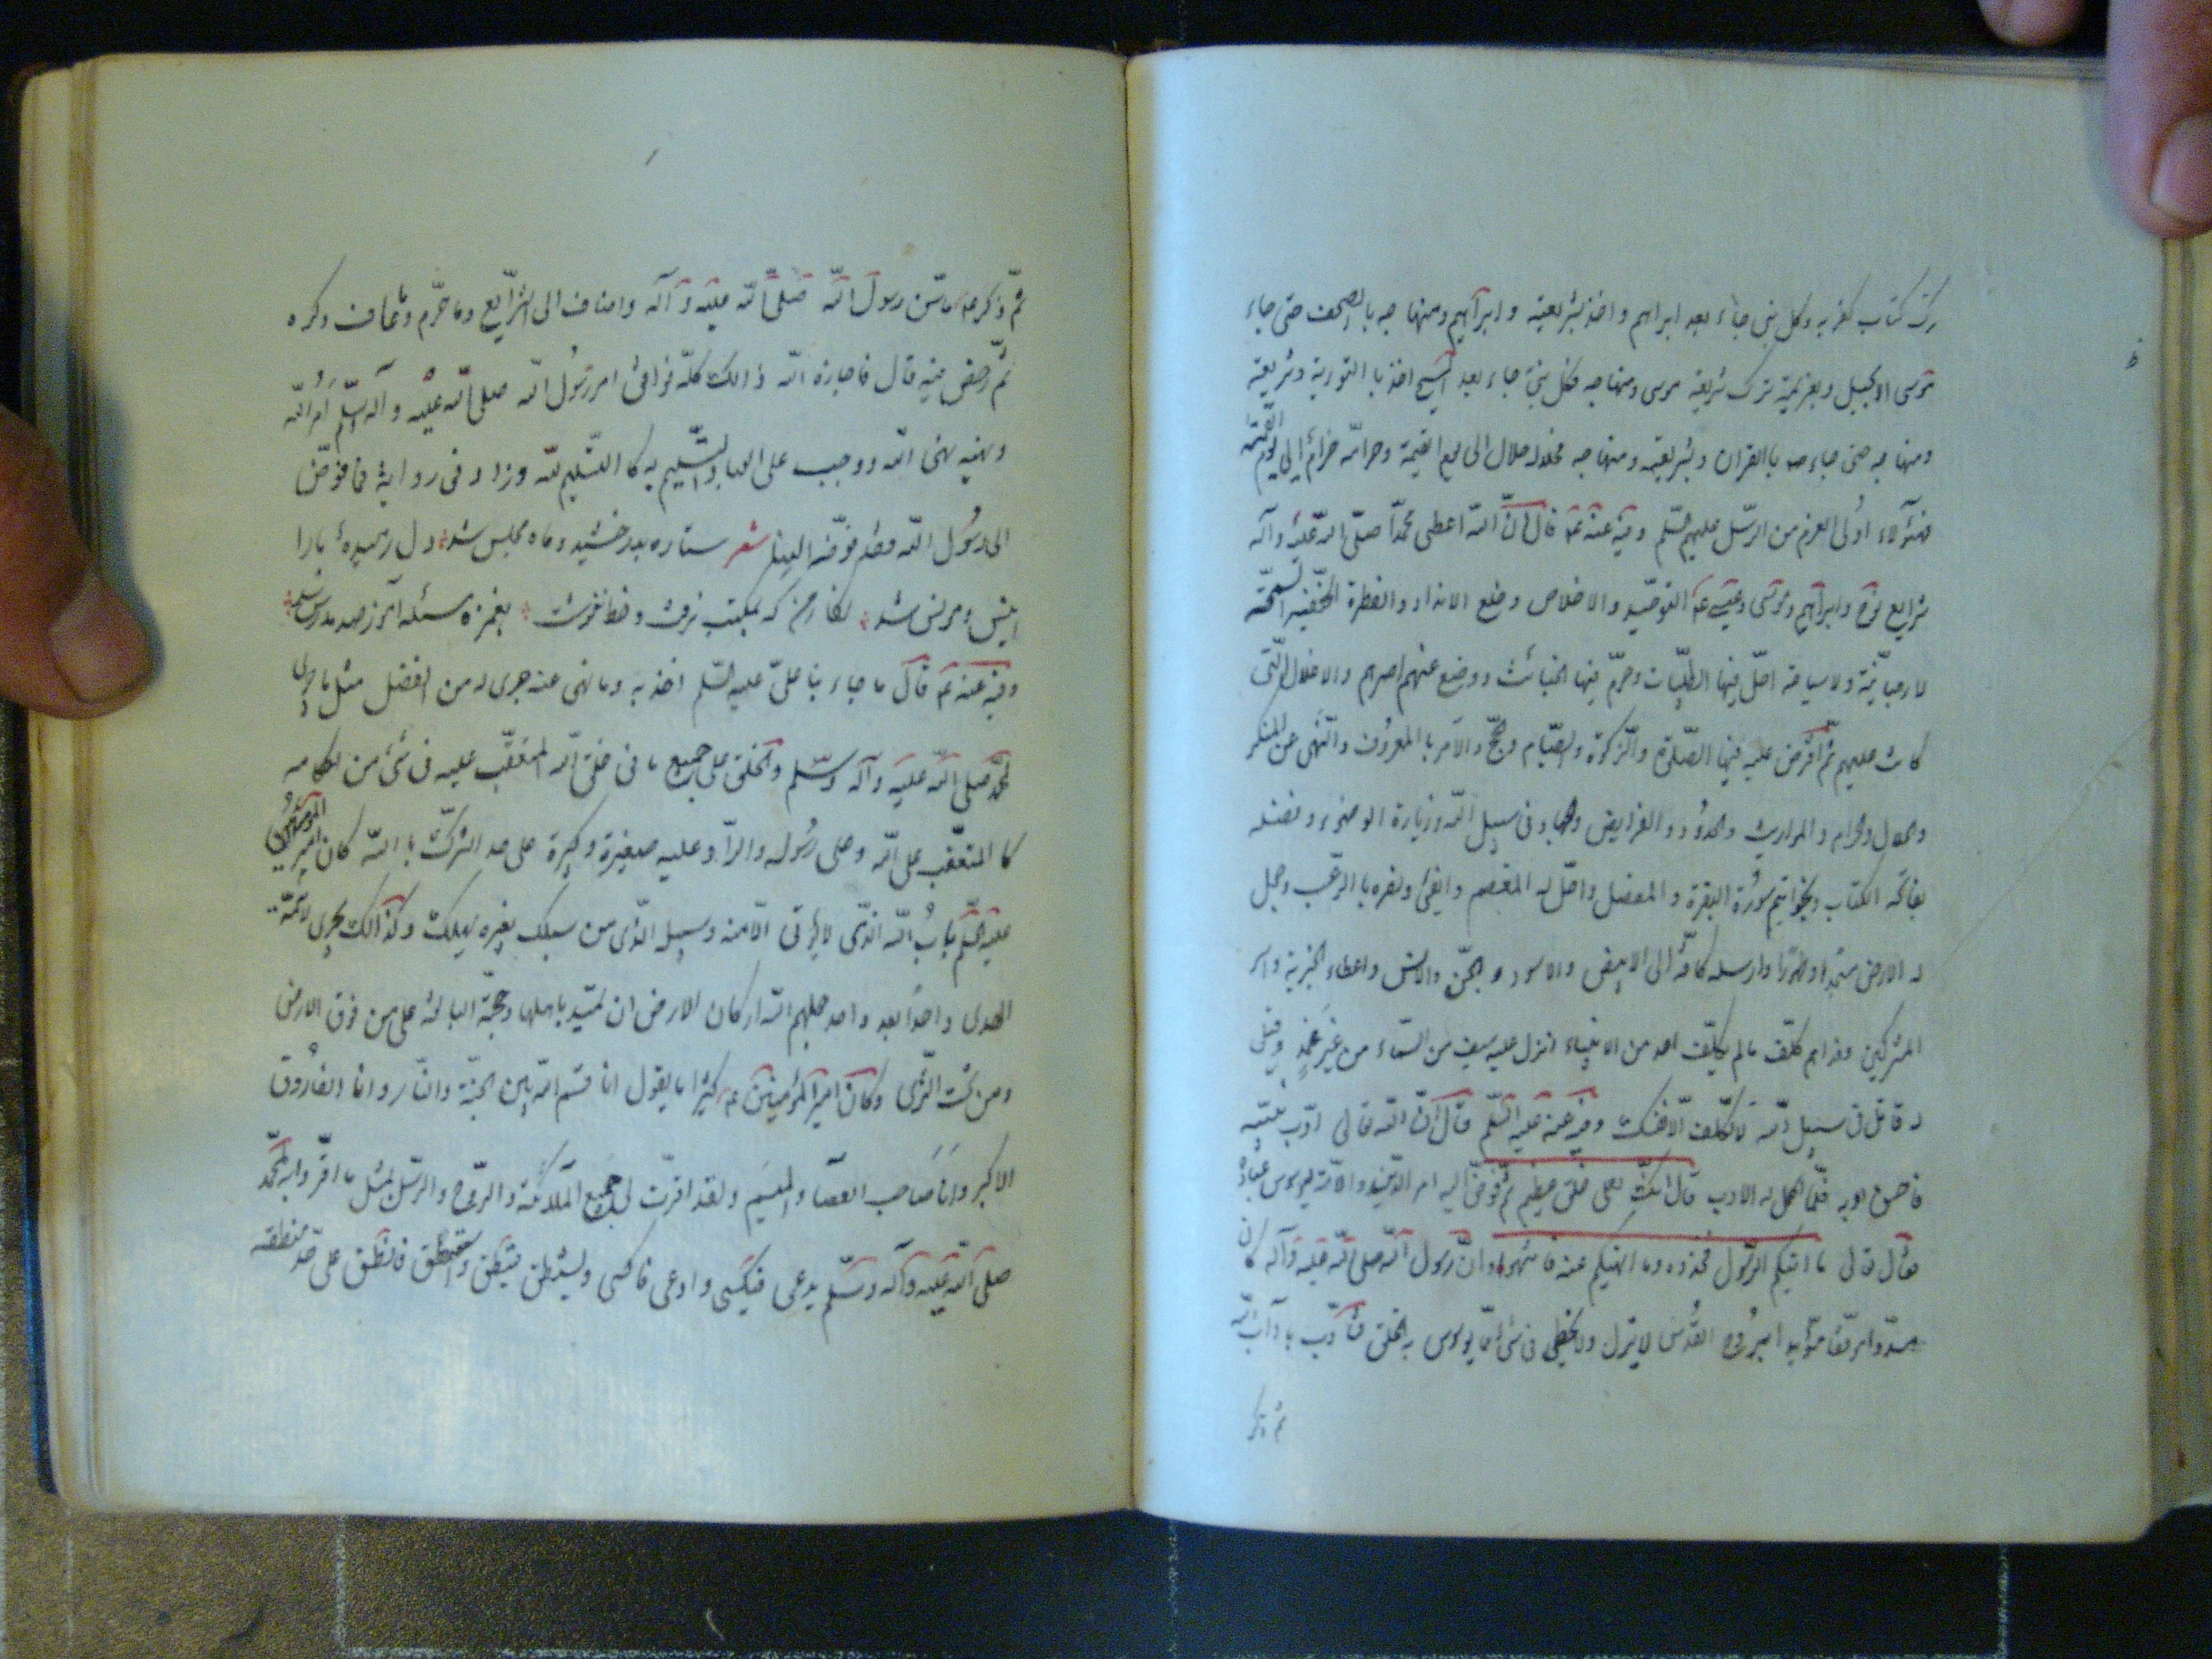 ترک کتاب کفر به وکل نبی جاء بعد ابراهیم واخذ بشریعته و ابراهیم ومنهاجه بالصحف حتی جاء
موسی الانجیل وبعزیمة ترک شریعة موسی ومنهاجه فکل نبی جاء بعد المسیح اخذ بالتوریة وشریعته
ومنهاجه حتی جاء محمد بالقران وبشریعته ومنهاجه فحلاله حلال الی یوم القیمة وحرامه حرام الی یوم القیمة
فهؤلاء اولی العزم من الرسل علیهم السلم وفیه عنه ع قال ان الله اعطی محمدا صلی الله علیه وآله
شرایع نوح وابراهیم وموسی وعیسی ع التوحید والاخلاص وخلع الانداد والفطرة الحنیفیة السمحة
لا رهبانیة ولا سیاحة احل فیها الطیبات وحرم فیها الخبائث ووضع عنهم اصرهم والاغلال التی
کانت علیهم ثم افترض علیه فیها الصلوة والزکوة والصیام والحج والامر بالمعروف والنهی عن المنکر
والحلال والحرام والمواریث والحدود والفرایض والجهاد فی سبیل الله وزیارة الوضوء وفضله
بفاتحة الکتاب وبخواتیم سورة البقرة والمفصل واحل له المغنم والفیء ونصره بالرعب وجعل
له الارض مسجدا وطهورا وارسله کافة الی الابیض والاسود والجن والانس واعطاه الجزیة واسر
المشرکین وفداهم ثم کلف ما لم یکلف احد من الانبیاء انزل علیه سیف من السماء من غیر غمد وقیل
له قاتل فی سبیل الله لا تکلف الا نفسک وفیه عنه علیه السلم قال ان الله تعالی ادب نبیه
فاحسن ادبه فلما اکمل له الادب قال انک لعلی خلق عظیم ثم فوض الیه امر الدین والامة لیسوس عباده
فقال تعالی ما اتیکم الرسول فخذوه وما نهیکم عنه فانتهوا وان رسول الله صلی الله علیه وآله کان
مسددا موفقا مؤیدا بروح القدس لا یزل ولا یخطی فی شیء مما یسوس به الخلق فتادب بآداب الله
ثم ذکر
ثم ذکر ع ما سن رسول الله صلی الله علیه وآله واضاف الی الشرایع وما حرم وعاف وکره
ثم رخص فیه قال فاجازه الله ذالک کله فوافق امر رسول الله صلی الله علیه وآله وسلم امر الله
ونهیه نهی الله ووجب علی العباد التسلیم له کا التسلیم لله وزاد فی روایة فما فوض
الی رسول الله فقد فوضه الینا شعر ستاره بدرخشید وماه مجلس شد دل رمیده ما را
انیس ومونس شد نگار من که بمکتب نرفت وخط ننوشت بغمزه مسئله آموز صد مدرس شد
وفیه عنه ع قال ما جاء بنا علی علیه السلم اخذ به وما نهی عنه جری له من الفضل مثل ما جری
لمحمد صلی الله علیه وآله وسلم والخلق علی جمیع ما فی خلق الله المتعقب علیه فی شیء من احکامه
کا المتعقب علی الله وعلی رسوله والراد علیه صغیرة وکبیرة علی حد الشرک بالله کان امیر المؤمنین
علیه السلم باب الله الذی لا یؤتی الا منه وسبیله الذی من سلک بغیره یهلک وکذالک یجری لائمة
الهدی واحدا بعد واحد جعلهم الله ارکان الارض ان تمید باهلها وحجته البالغة علی من فوق الارض
ومن تحت الثری وکان امیر المؤمنین ع کثیرا ما یقول انا قسیم الله بین الجنة والنار وانا الفاروق
الاکبر وانا صاحب العصا والمیسم ولقد اقرت لی جمیع الملائکة والروح والرسل بمثل ما اقروا به لمحمد
صلی الله علیه وآله وسلم یدعی فیکسی وادعی فاکسی ویستنطق فینطق واستنطق فانطق علی حد منطقه